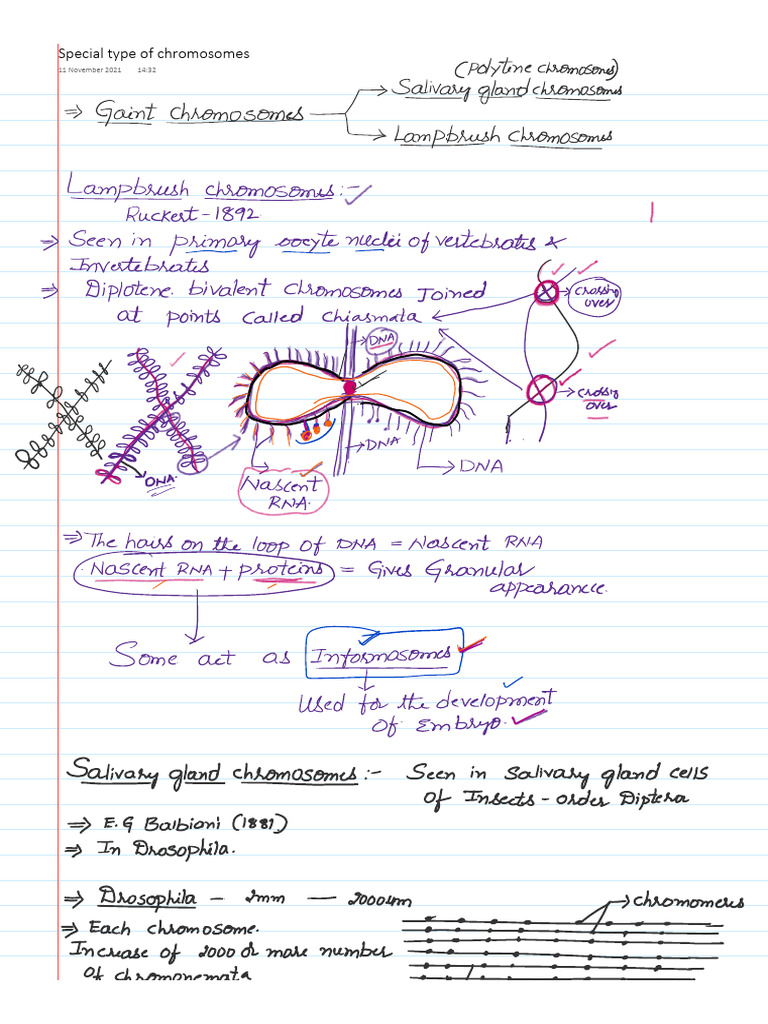 Special type of chromosomes
11 November 2021 14:32
(Polytene chromosomes)
Salivary gland chromosomes
⇒ Gaint chromosomes
Lampbrush chromosomes
Lampbrush chromosomes:-
Ruckert-1892.
⇒ Seen in primary oocyte nuclei of vertebrates &
Invertebrates
⇒ Diplotene bivalent chromosomes Joined
at points called chiasmata
crossing
over
DNA
crossing
over
DNA
DNA
DNA
Nascent
RNA.
⇒ The hairs on the loop of DNA = Nascent RNA
Nascent RNA + proteins = Gives Granular
appearance.
Some act as Informosomes
Used for the development
of Embryo.
Salivary gland chromosomes:- Seen in salivary gland cells
of Insects - order Diptera
⇒ E.G Balbiani (1881)
⇒ In Drosophila.
⇒ Drosophila - 2mm — 2000um
chromomeres
⇒ Each chromosome.
Increase of 2000 or more number
of chromonemata